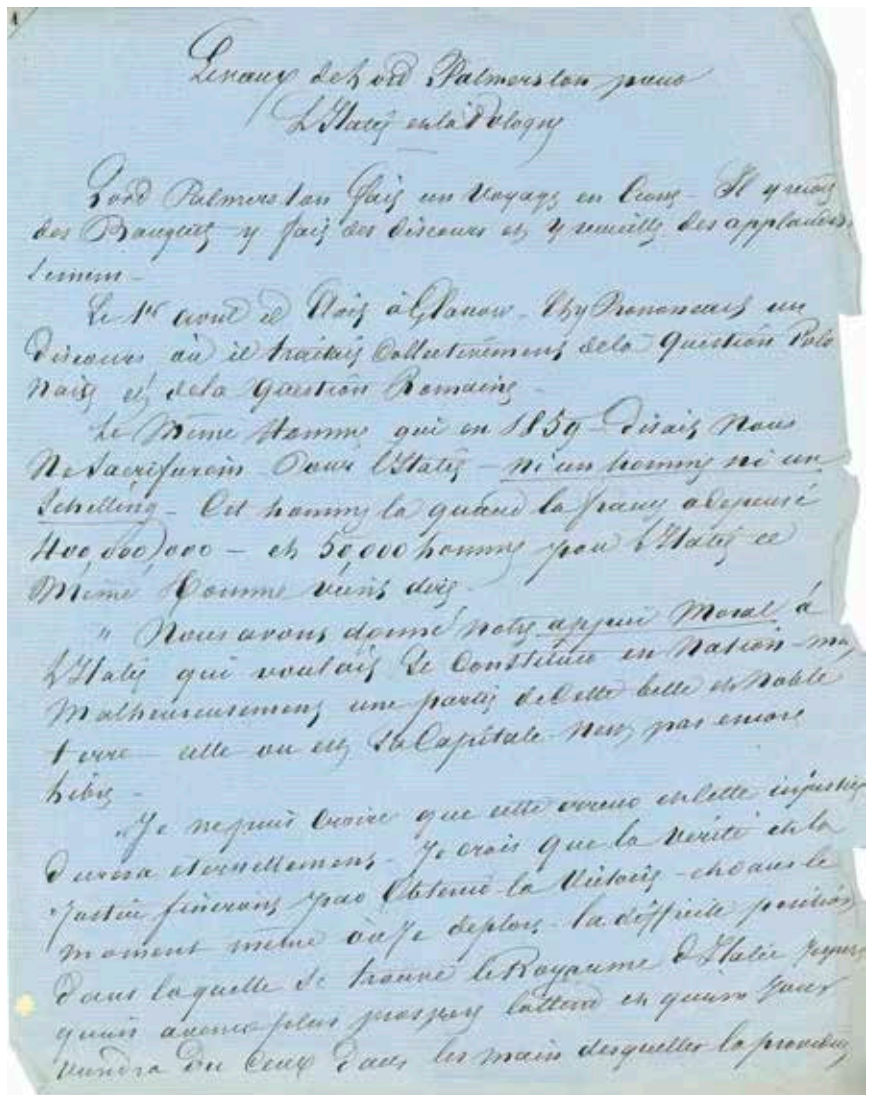 de Lord Palmerston pour
L'Italie et la Pologne
Lord Palmerston fait un voyage en - Il y reçoit
des Banquets y fait des discours et y recueille des applaudis
sement -
Le 1er avril il était à Glascow - Il y Prononçait un
discours où il traitait Collectivement de la Question Polo
naise et de la Question Romaine -
Le Même Homme qui en 1859 - disait Nous
Ne Sacrifierons Pour l'Italie - ni un homme ni un
Schelling - Cet homme la quand la france a depensé
400,000,000 - et 50,000 hommes pour l'Italie ce
Même Homme vient dire -
" Nous avons donné notre appui Moral à
L'Italie qui voulait se Constituer en Nation - mais
Malheureusement une partie de Cette belle et Noble
terre - celle ou est Sa Capitale - n'est pas encore
libre -
Je ne puis Croire que cette erreur et cette injustice
durera eternellement - Je crois que la Verité et la
Justice finiront par Obtenir la Victoire - et dans le
moment même où Je deplore - la difficile position
dans laquelle se trouve le Royaume d'Italie
avenir plus prospere l'attend et qu'un Jour
viendra ou Ceux dans les main desquelles la providence